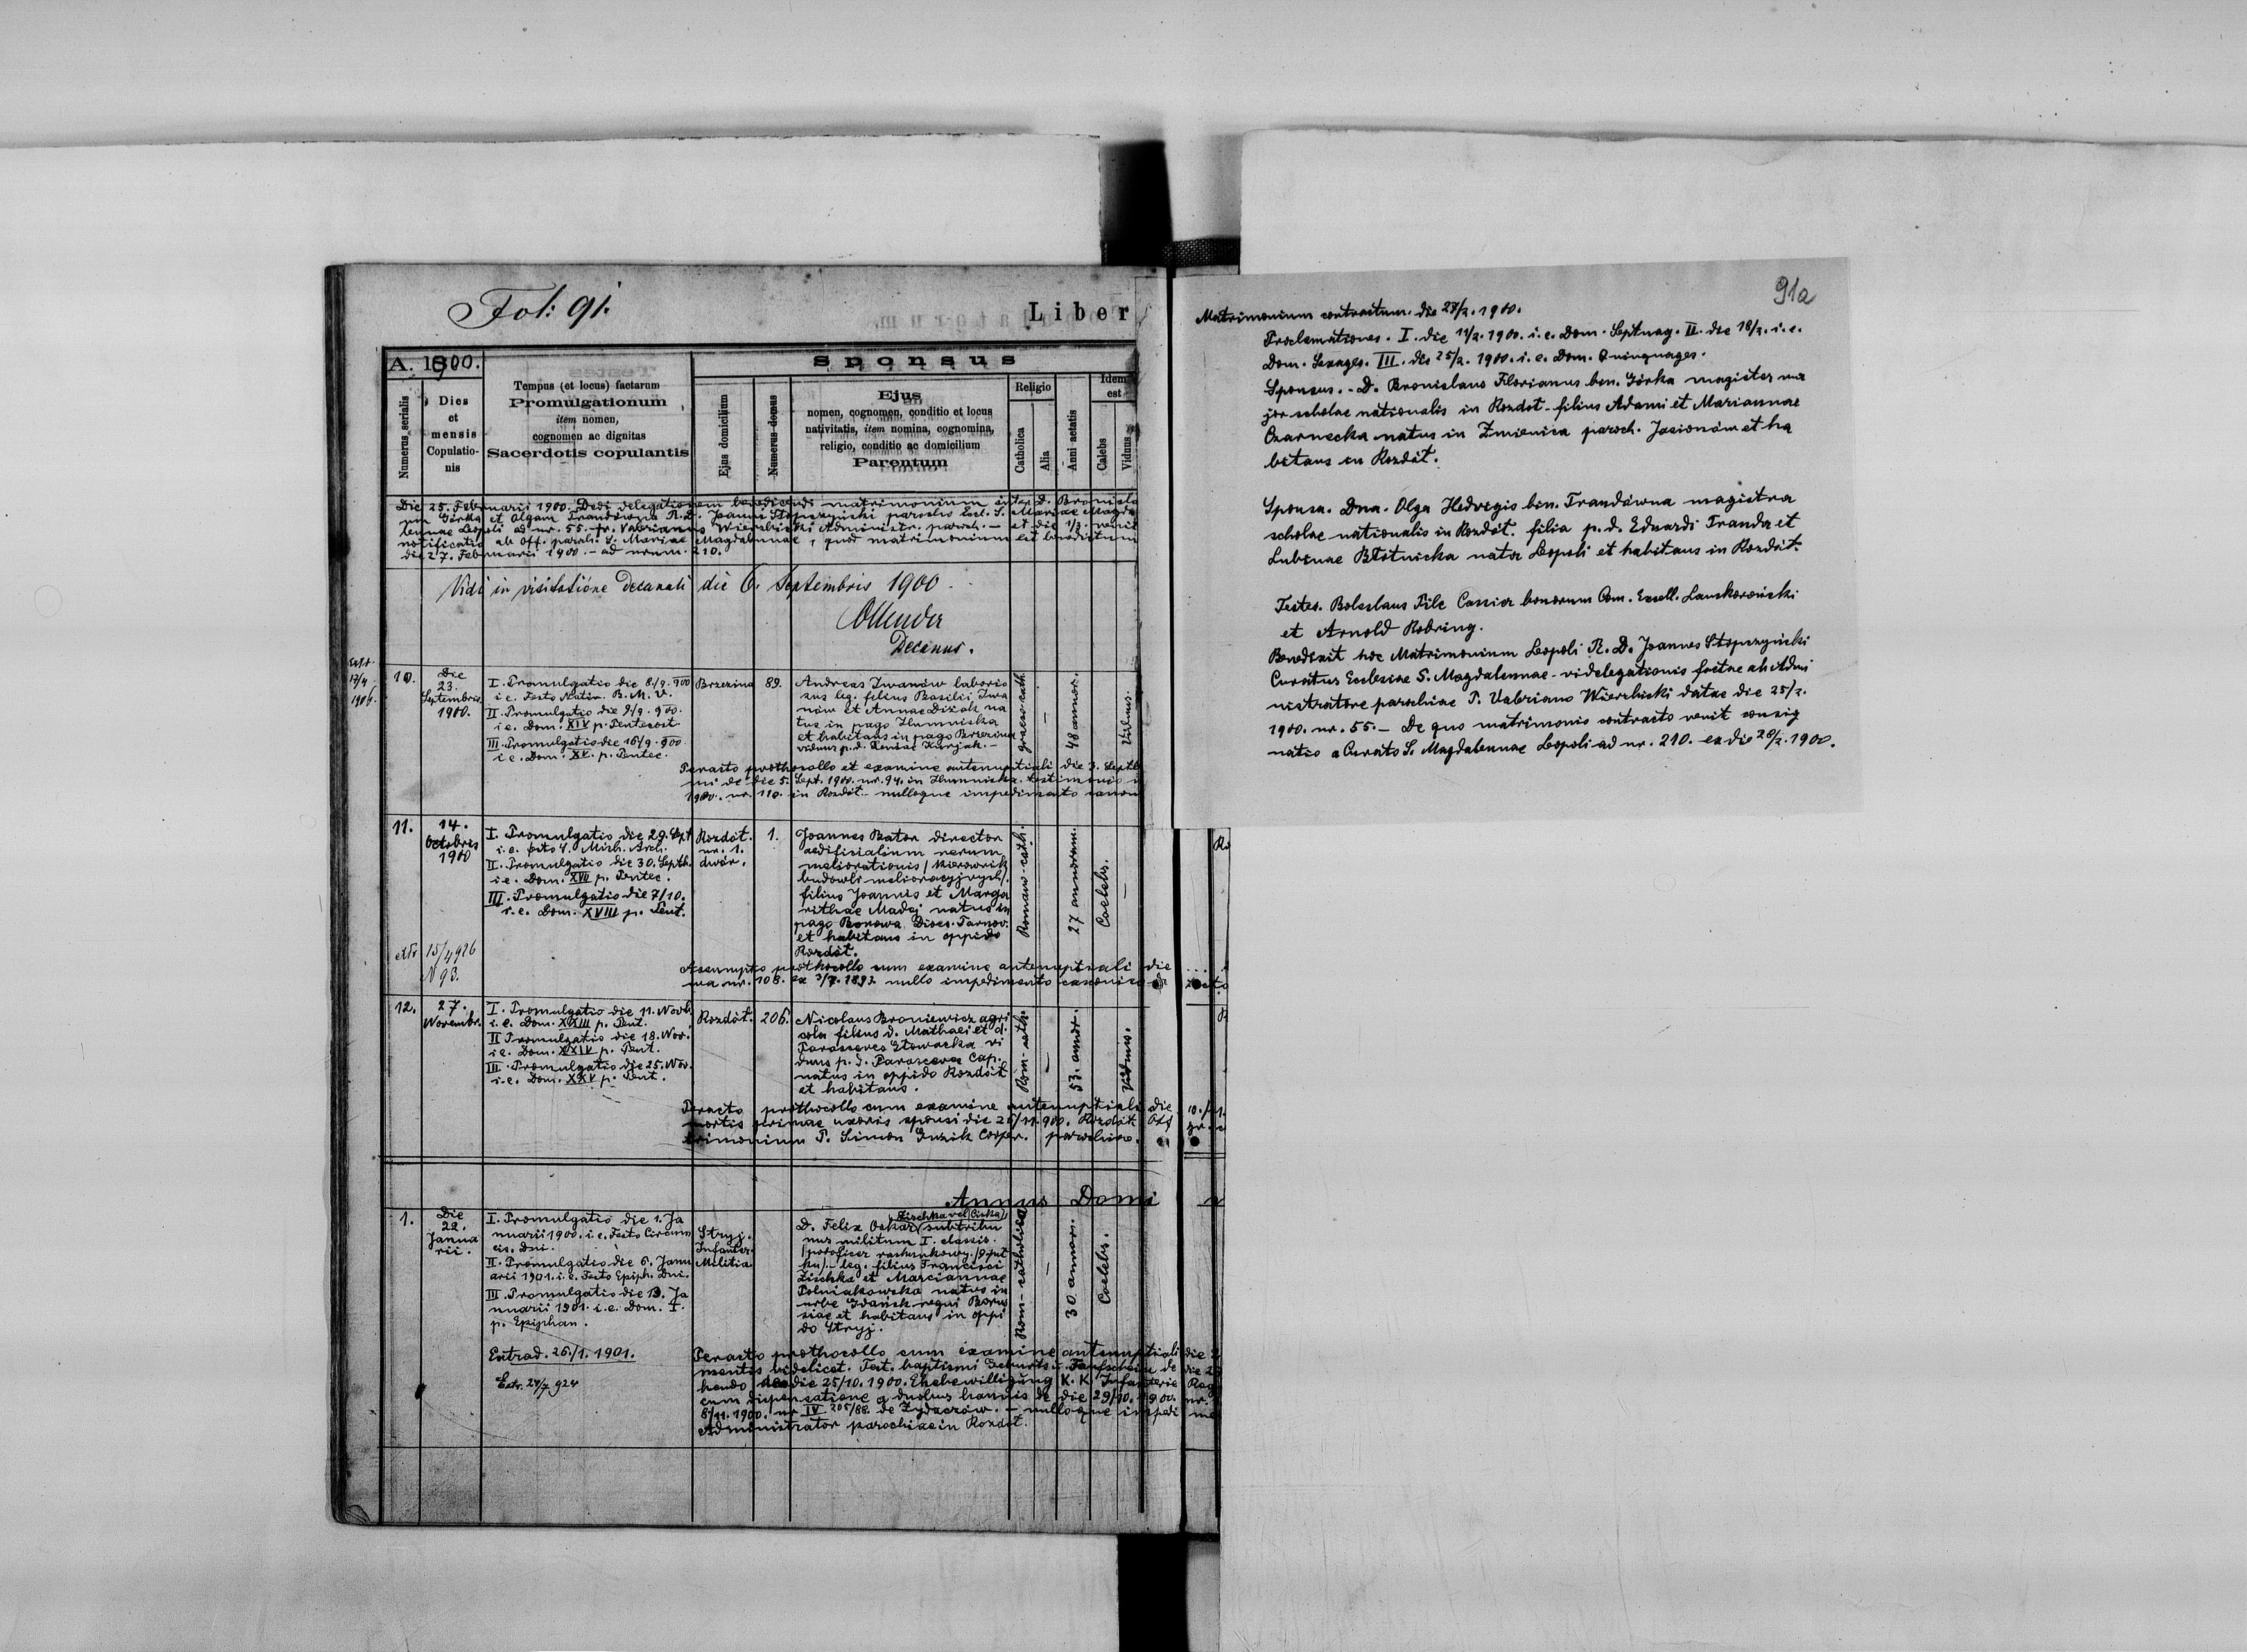 Fol: 91.
Liber
A. 1900.
Sponsus
Numerus serialis
Dies
et
mensis
Copulatio-
nis
Tempus (et locus) factarum
Promulgationum
item nomen,
cognomen ac dignitas
Sacerdotis copulantis
Ejus domicilium
Numerus domus
Ejus
nomen, cognomen, conditio et locus
nativitatis, item nomina, cognomina,
religio, conditio ac domicilium
Parentum
Religio
Catholica
Alia
Anni aetatis
Idem
est
Calebs
Viduus
Die 25. Februarii 1900. Dedi delegationem benedicendi matrimonium inter D. Bronisla
um Górka et Olgam Trandówna R. D. Joanni Stopczyński parocho Eccl. S. Mariae Magda
lennae Leopoli ad nr. 55. pr. Valerianus Wierzbicki Administr. paroch. — et die 1/3. venit
notificatio ab Off. paroh. S. Mariae Magdalennae, quod matrimonium est benedictum
die 27. Februarii 1900. — ad nrum. 210.
Vidi in visitatione Decanali die 6. Septembris 1900.
Decanus.
10.
Die
23.
Septembris
1900.
I. Promulgatio die 8/9. 900
i e. Festo Nativ. B. M. V.
II. Promulgatio die 9/9. 900.
i e. Dom. XIV p. Pentecost.
III. Promulgatio die 16/9. 900.
i e. Dom. XV. p. Pentec.
Brzezina
89.
Andreas Iwanów laborio
sus leg. filius Basilii Iwa
nów et Annae Dziak na
tus in pago Humniska
et habitans in pago Brzezina
viduus p. d. Xeniae Kurjak. —
graeco-cath.
—
48 annor.
Viduus.
Peracto prothocollo et examine antenuptiali die 3. Septb
mi de die 5. Sept. 1900. nr. 94. in Humniska. testimonio
1900. nr. 110. in Rozdół — nulloque impedimento canon
11.
14.
Octobris
1900
I. Promulgatio die 29. Sept.
i. e. festo S. Mich. Arch.
II. Promulgatio die 30. Septb.
i. e. Dom. XVII p. Pentec.
III. Promulgatio die 7/10.
i. e. Dom. XVIII p. Pent.
Rozdół.
nr. 1.
dwór.
1.
Joannes Bator director
aedificialium rerum
meliorationis / kierownik
budowli melioracyjnych/.
filius Joannis et Marga
rithae Madej natus in
pago Borowa Dioec. Tarnov.
et habitans in oppido
Rozdół.
Romano-cath.
—
27 annorum.
Coelebs.
—
extr 15/4 926
N 93.
Assumpto prothocollo cum examine antenuptiali die
wa nr. 108. ex 3/7. 1893 nullo impedimento canonico
12.
27.
Novembr.
I. Promulgatio die 11. Novb.
i. e. Dom. XXIII p. Pent.
II Promulgatio die 18. Nov.
i e. Dom. XXIV p. Pent.
III. Promulgatio die 25. Nov.
i. e. Dom. XXV p. Pent.
Rozdół.
206.
Nicolaus Broniewicz agri
cola filius d. Mathaei et d.
Parasceves Głowacka vi
duus p. d. Parasceva Cap.
natus in oppido Rozdół
et habitans.
Rom-cath.
—
53. annor.
Viduus.
Peracto prothocollo cum examine antenuptiali die
mortis primae uxoris sponsi die 26/11. 900. Rozdół
trimonium P. Simon Guzik Cooper. parochiae.
Annus Domi
1.
Die
22.
Janua
rii.
I. Promulgatio die 1. Ja
nuarii 1900. i. e. Festo Circum
cis. Dni.
II. Promulgatio die 6. Janu
arii 1901. i. e. Festo Epiph. Dni.
III. Promulgatio die 13. Ja
nuarii 1901. i. e. Dom. I.
p. Epiphan.
Extrad. 26./1. 1901.
Extr. 24/7 924
Stryj.
Infanter.
Militia
Zischka vel (Ciska)
D. Felix Oskar (subtribu
nus militum I. classis.
/podoficer rachunkowy./
leg. filius Francisci
Zischka et Marciannae
Polniakowska natus in
urbe Gdańsk regni Borus
siae et habitans in oppi
do Stryj.
Rom-catholica
—
30 annor.
Coelebs.
Peracto prothocollo cum examine antenuptiali die 2
mentis videlicet. Test. baptismi Geburts u. Taufschein de die 2
hendo de die 25/10. 1900. Ehebewilligung K. K. Infanterie Reg
cum dispensatione a duobus bannis de die 29/10. 1900. nr.
8/11. 1900. nr IV 205/88. de Żydaczów. — nulloque impedi me
Administrator parochiae in Rozdół.
91a
Matrimonium contractum. die 27/2. 1900.
Proclamationes. I. die 11/2. 1900. i. e. Dom. Septuag. II. die 18/2. i. e.
Dom. Sexages. III. die 25/2. 1900. i. e. Dom. Quinquages.
Sponsus. - D. Bronislaus Florianus bin. Górka magister ma
jor scholae nationalis in Rozdół - filius Adami et Mariannae
Czarnecka natus in Zmienica paroch. Jasionów et ha
bitans in Rozdół.
Sponsa. Dna. Olga Hedvigis bin. Trandówna magistra
scholae nationalis in Rozdół. filia p. d. Eduardi Tranda et
Lubinae Błotnicka nata Leopoli et habitans in Rozdół.
Testes. Boleslaus File Cassier bonorum Com. Excell. Lanskoroński
et Arnold Robring.
Benedixit hoc Matrimonium Leopoli R. D. Joannes Stopczyński
Curatus Ecclesiae S. Magdalennae - vi delegationis factae ab Admi
nistratore parochiae P. Valeriano Wierzbicki datae die 25/2.
1900. nr. 55. — De quo matrimonio contracto venit consig
natio a Curato S. Magdalennae Leopoli ad nr. 210. ex die 28/2. 1900.